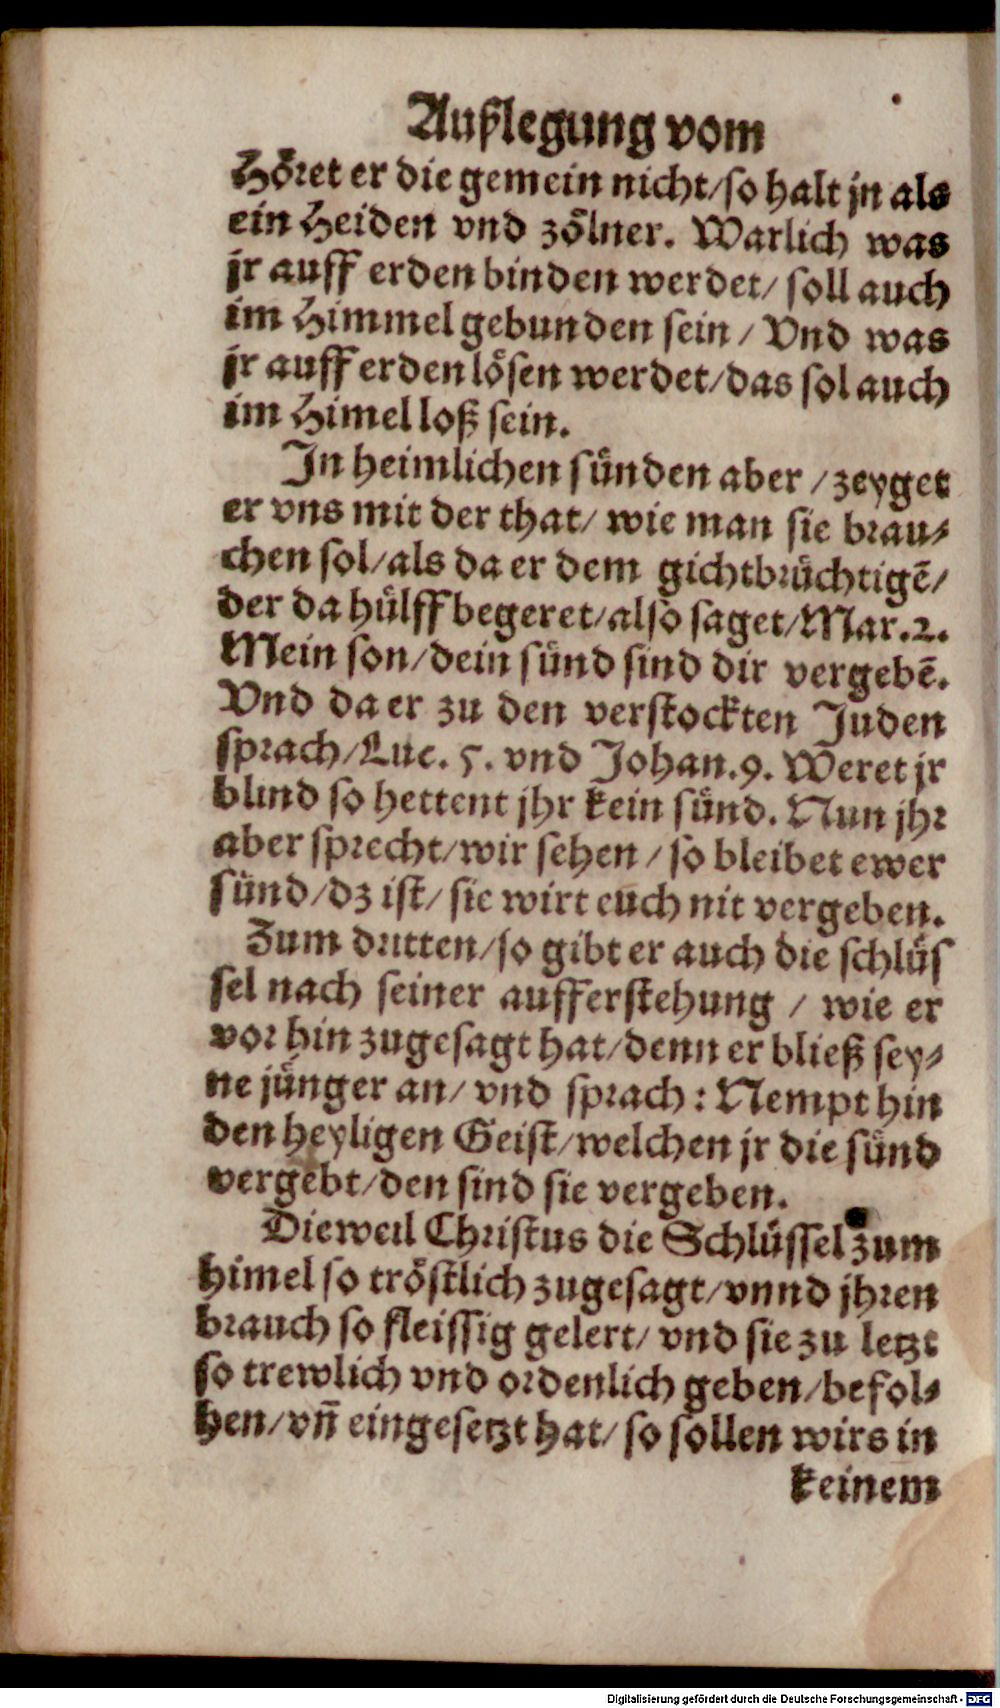 Außlegung vom
Höret er die gemein nicht/so halt jn als
ein Heiden vnd zölner. Warlich was
jr auff erden binden werdet/ soll auch
im Himmel gebunden sein / Vnd was
jr auff erden lösen werdet/das sol auch
im Himel loß sein.
In heimlichen sünden aber / zeyget
er vns mit der that/ wie man sie brau⸗
chen sol/als da er dem gichtbrüchtigē/
der da hülff begeret/also saget/Mar.2.
Mein son/dein sünd sind dir vergebē.
Vnd da er zu den verstockten Juden
sprach/Luc. 5. vnd Johan.9. Weret jr
blind so hettent jhr kein sünd. Nun jhr
aber sprecht/wir sehen / so bleibet ewer
sünd/dz ist/ sie wirt euch nit vergeben.
Zum dritten/so gibt er auch die schlüs
sel nach seiner aufferstehung / wie er
vor hin zugesagt hat/denn er bließ sey⸗
ne jünger an/ vnd sprach: Nempt hin
den heyligen Geist/welchen jr die sünd
vergebt/den sind sie vergeben.
Dieweil Christus die Schlüssel zum
himel so tröstlich zugesagt/vnnd jhren
brauch so fleissig gelert/ vnd sie zu letzt
so trewlich vnd ordenlich geben/befol⸗
hen/vn̄ eingesetzt hat/ so sollen wirs in
keinem
Digitalisierung gefördert durch die Deutsche Forschungsgemeinschaft - DFG